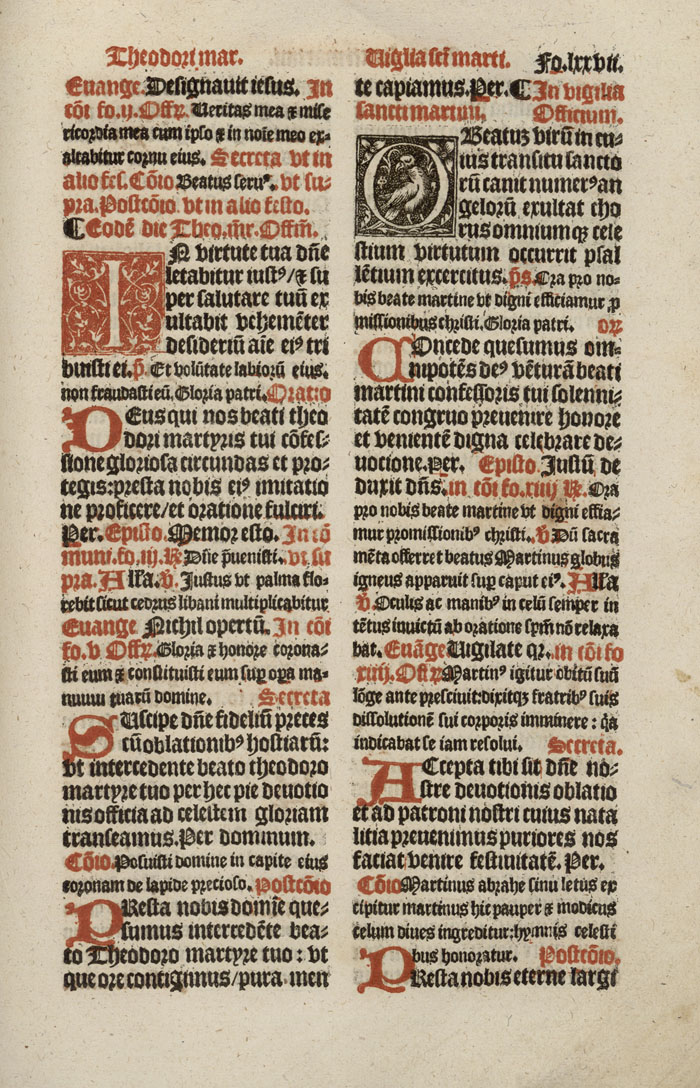 Theodori mar.
Euange. Designauit iesus. In
cōi fo.ij. Offꝝ. Veritas mea ⁊ mise
ricordia mea cum ipso ⁊ in noīe meo ex⸗
altabitur cornu eius. Secreta vt in
alio fes. Cōio Beatus seruꝰ. vt su⸗
pra. Postcōio vt in alio festo.
¶ Eodē die Theo. mr̄. Offm̄.
IN virtute tua dn̄e
letabitur iustꝰ/⁊ su
per salutare tuū ex
ultabit vehemēter
desideriū aīe eiꝰ tri
buisti ei. p̄. Et volūtate labiorū eius.
non fraudasti eū. Gloria patri. Oratio
DEus qui nos beati theo
dori martyris tui cōfes⸗
sione gloriosa circundas et pro⸗
tegis: presta nobis eiꝰ imitatio
ne proficere/et oratione fulciri.
Per. Episto. Memor esto. In cō
muni. fo. iij. R̷ Dn̄e p̄uenisti. vt su
pra. Alľa. v̄. Justus vt palma flo⸗
rebit sicut cedrus libani multiplicabitur
Euange Nichil opertū. In cōi
fo. v Offꝝ. Gloria ⁊ honore corona⸗
sti eum ⁊ constituisti eum sup oꝑa ma⸗
nuum tuarū domine. Secreta
SUscipe dn̄e fideliū preces
cū oblationibꝰ hostiarū:
vt intercedente beato theodoro
martyre tuo per hec pie deuotio
nis officia ad celestem gloriam
transeamus. Per dominum.
Cōio. Posuisti domine in capite eius
coronam de lapide precioso. Postcōio
PResta nobis domīe que⸗
sumus intercedēte bea⸗
to Theodoro martyre tuo: vt
que ore contigimus/pura men
Uiglia scī marti. Fo. lxxvii.
te capiamus. Per. ¶ In vigilia
sancti martini. Officium.
OBeatuꝫ virū in cu⸗
ius transitu sancto
rū canit numerꝰ an
gelorū exultat cho
rus omniumqꝫ cele
stium virtutum occurrit psal
lētium excercitus. p̄s. Ora pro no⸗
bis beate martine vt digni efficiamur ꝓ
missionibus christi. Gloria patri. oꝝ
COncede quesumus om⸗
nipotēs deꝰ vēturā beati
martini confessoris tui solenni⸗
tatē congruo preuenire honore
et venientē digna celebrare de⸗
uocione. Per. Episto. Justū de
duxit dn̄s. in cōi fo. xiiij R̷. Ora
pro nobis beate martine vt digni effia⸗
mur promissionibꝰ christi. v̄. Dū sacra
mēta offerret beatus Martinus globus
igneus apparuit sup caput eiꝰ. Alľa
v̄. Oculis ac manibꝰ in celū semper in
tētus inuictū ab oratione spm̄ nō relaxa
bat. Euāge Uigilate qꝛ. in cōi fo
xiiij. Offꝝ Martinꝰ igitur obitū suū
lōge ante presciuit: dixitqꝫ fratribꝰ suis
dissolutionē sui corporis imminere: q̄a
indicabat se iam resolui. Secreta.
ACcepta tibi sit dn̄e no⸗
stre deuotionis oblatio
et ad patroni nostri cuius nata
litia preuenimus puriores nos
faciat venire festiuitatē. Per.
Cōio Martinus abrahe sinu letus ex
cipitur martinus hic pauper ⁊ modicus
celum diues ingreditur: hymnis celesti
bus honoratur. Postcōio.
PResta nobis eterne largi